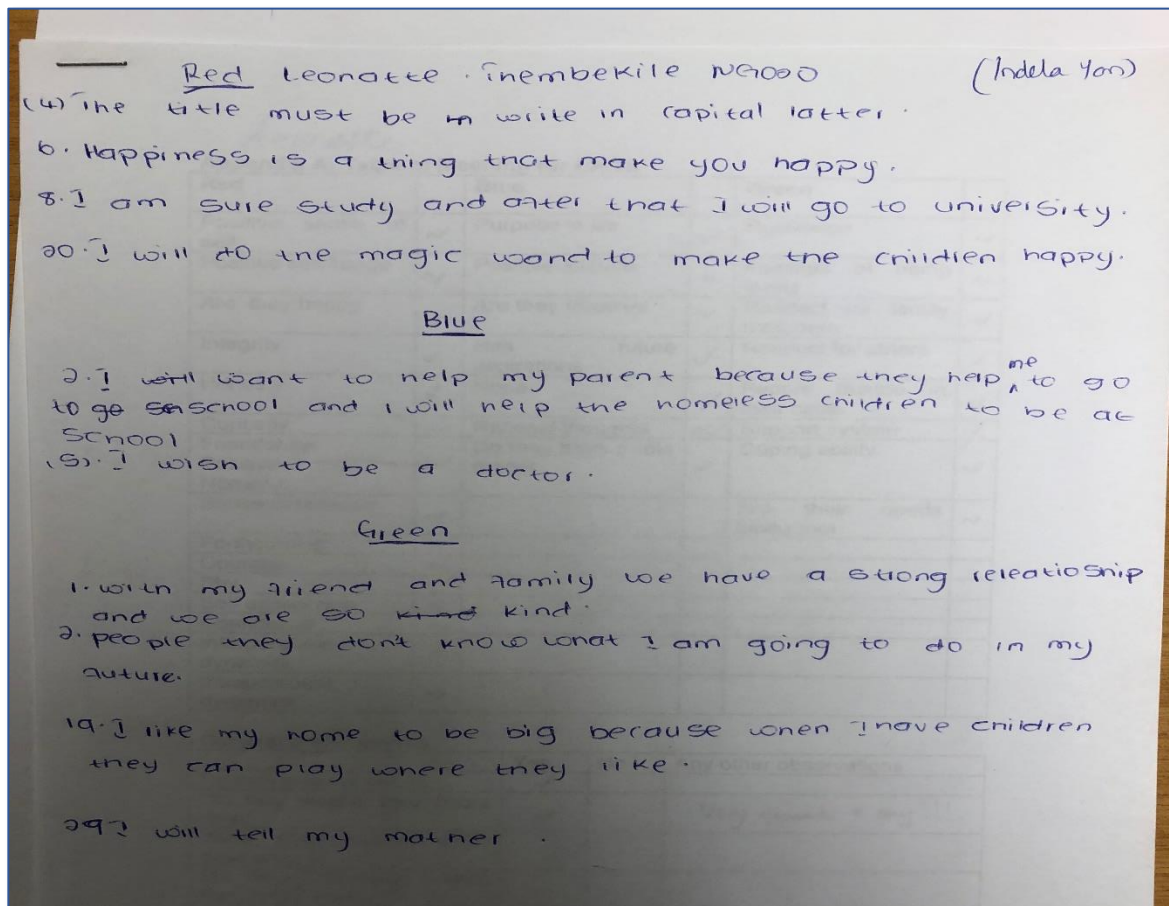 Red Leonatte. Tnembekile NGOOO (Indela Yan)
(4) The title must be in write in capital latter.
6. Happiness is a thing that make you happy.
8. I am sure study and after that I will go to university.
20. I will do the magic wand to make the children happy.
Blue
2. I will want to help my parent because they help me to go
to go sc school and i will help the homeless children to be at
school
(5). I wish to be a doctor.
Green
1. with my friend and family we have a strong releatioship
and we are so kind kind.
2. people they don't know what I am going to do in my
future.
19. I like my home to be big because when I have children
they can play where they like.
29 I will tell my mother.